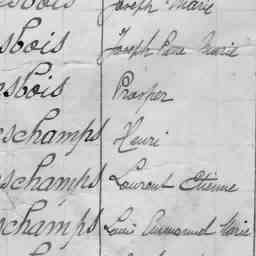 sbois Joseph Marie
sbois Joseph Pierre Marie
sbois Prosper
schamps Henri
schamps Laurent Etienne
schamps Louis Emmanuel Marie